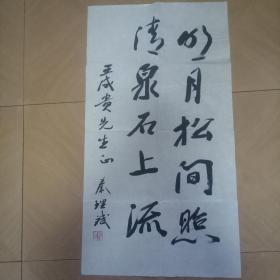 明月松间照
清泉石上流
王成贵先生正